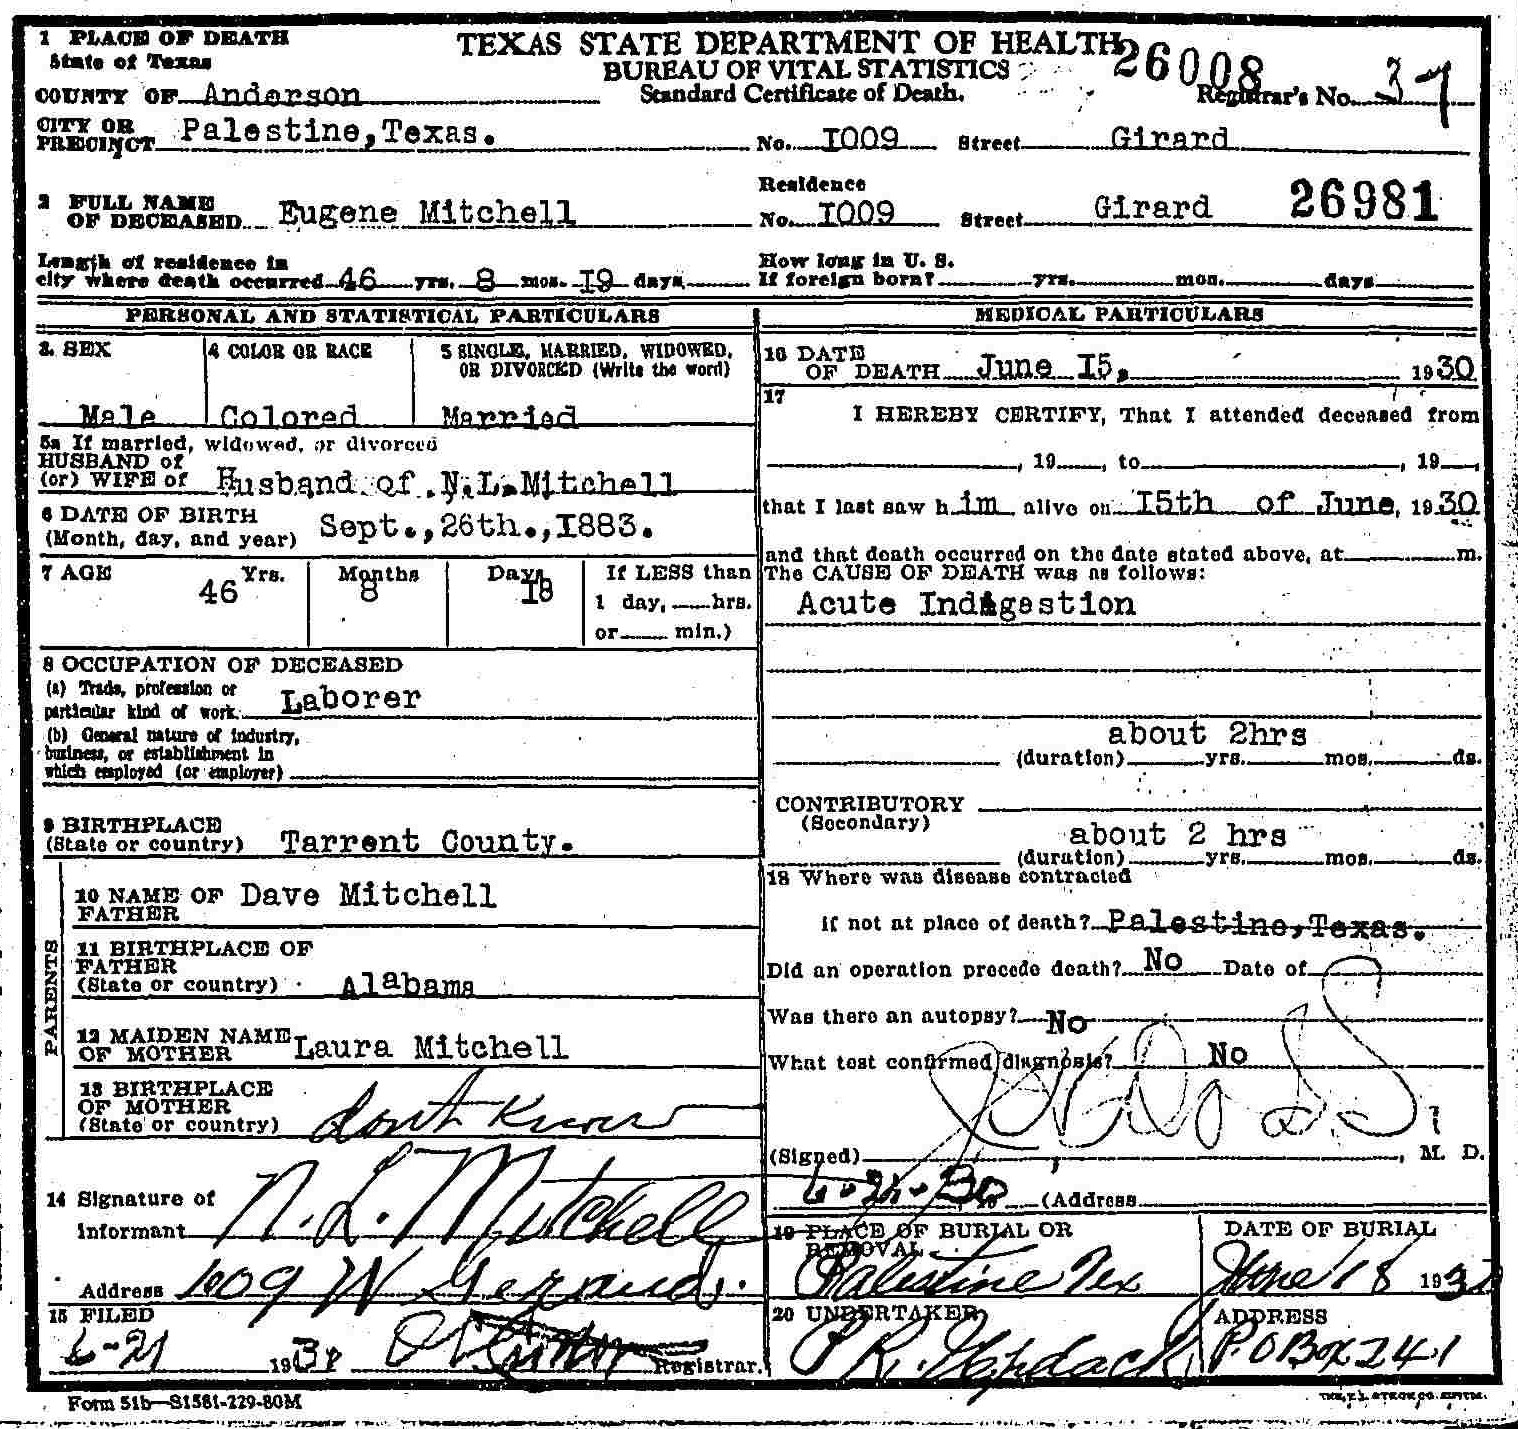 1 PLACE OF DEATH
State of Texas
TEXAS STATE DEPARTMENT OF HEALTH
BUREAU OF VITAL STATISTICS
Standard Certificate of Death.
26008
COUNTY OF Anderson
Registrar's No. 37
CITY OR PRECINCT Palestine, Texas.
No. I009 Street Girard
2 FULL NAME OF DECEASED Eugene Mitchell
Residence No. I009 Street Girard
26981
Length of residence in city where death occurred 46 yrs. 8 mos. I9 days
How long in U. S. If foreign born? yrs. mos. days
PERSONAL AND STATISTICAL PARTICULARS
3. SEX Male
4 COLOR OR RACE Colored
5 SINGLE, MARRIED, WIDOWED, OR DIVORCED (Write the word) Married
5a If married, widowed, or divorced
HUSBAND of
(or) WIFE of Husband of N.L.Mitchell
6 DATE OF BIRTH
(Month, day, and year) Sept.,26th.,I883.
7 AGE 46 Yrs. 8 Months I8 Days
If LESS than
1 day, hrs.
or min.)
8 OCCUPATION OF DECEASED
(a) Trade, profession or
particular kind of work. Laborer
(b) General nature of industry,
business, or establishment in
which employed (or employer)
9 BIRTHPLACE
(State or country) Tarrent County.
PARENTS
10 NAME OF FATHER Dave Mitchell
11 BIRTHPLACE OF FATHER
(State or country) Alabama
12 MAIDEN NAME OF MOTHER Laura Mitchell
13 BIRTHPLACE OF MOTHER
(State or country) dont Know
14 Signature of
Informant N. L. Mitchell
Address 1009 W
15 FILED
6-21 193
Registrar.
MEDICAL PARTICULARS
16 DATE OF DEATH June I5, 1930
17 I HEREBY CERTIFY, That I attended deceased from
, 19 , to , 19 ,
that I last saw h im alive on I5th of June, 1930
and that death occurred on the date stated above, at m.
The CAUSE OF DEATH was as follows:
Acute Indigestion
about 2hrs
(duration) yrs. mos. ds.
CONTRIBUTORY
(Secondary)
about 2 hrs
(duration) yrs. mos. ds.
18 Where was disease contracted
if not at place of death? Palestine, Texas.
Did an operation precede death? No Date of
Was there an autopsy? No
What test confirmed diagnosis? No
(Signed) , M. D.
(Address
19 PLACE OF BURIAL OR REMOVAL
Palestine Tex
DATE OF BURIAL
June 18 193
20 UNDERTAKER
ADDRESS
P.O Box 241
Form 51b—S1581-229-80M